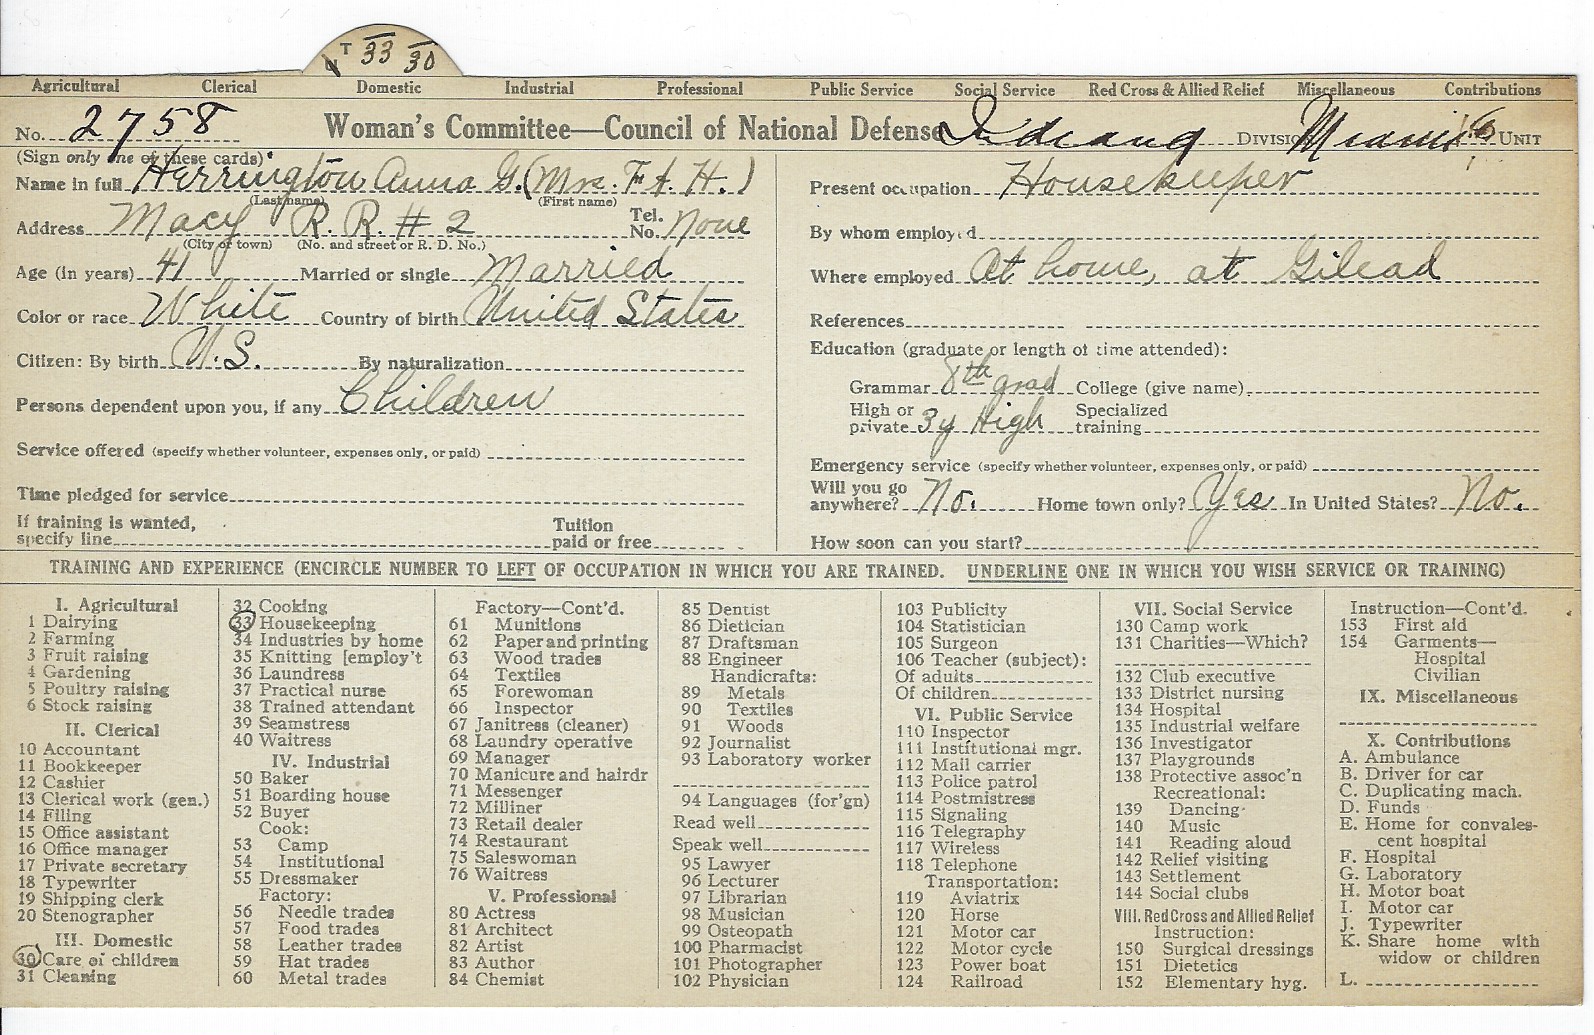 T 33 30
Agricultural Clerical Domestic Industrial Professional Public Service Social Service Red Cross & Allied Relief Miscellaneous Contributions
No. 2758 Woman's Committee—Council of National Defense Indiana DIVISION Miami UNIT
(Sign only one of these cards)
Name in full Herrington Anna G. (Mrs. H.)
(Last name) (First name)
Address Macy R. R. # 2 Tel. No. None
(City or town) (No. and street or R. D. No.)
Age (in years) 41 Married or single Married
Color or race White Country of birth United States
Citizen: By birth U.S. By naturalization
Persons dependent upon you, if any Children
Service offered (specify whether volunteer, expenses only, or paid)
Time pledged for service
If training is wanted, specify line Tuition paid or free
Present occupation Housekeeper
By whom employed
Where employed At home, at Gilead
References
Education (graduate or length of time attended):
Grammar 8th grad College (give name)
High or private 3y High Specialized training
Emergency service (specify whether volunteer, expenses only, or paid)
Will you go anywhere? No. Home town only? Yes In United States? No.
How soon can you start?
TRAINING AND EXPERIENCE (ENCIRCLE NUMBER TO LEFT OF OCCUPATION IN WHICH YOU ARE TRAINED. UNDERLINE ONE IN WHICH YOU WISH SERVICE OR TRAINING)
I. Agricultural
1 Dairying
2 Farming
3 Fruit raising
4 Gardening
5 Poultry raising
6 Stock raising
II. Clerical
10 Accountant
11 Bookkeeper
12 Cashier
13 Clerical work (gen.)
14 Filing
15 Office assistant
16 Office manager
17 Private secretary
18 Typewriter
19 Shipping clerk
20 Stenographer
III. Domestic
30 Care of children
31 Cleaning
32 Cooking
33 Housekeeping
34 Industries by home
35 Knitting [employ't
36 Laundress
37 Practical nurse
38 Trained attendant
39 Seamstress
40 Waitress
IV. Industrial
50 Baker
51 Boarding house
52 Buyer
Cook:
53 Camp
54 Institutional
55 Dressmaker
Factory:
56 Needle trades
57 Food trades
58 Leather trades
59 Hat trades
60 Metal trades
Factory—Cont'd.
61 Munitions
62 Paper and printing
63 Wood trades
64 Textiles
65 Forewoman
66 Inspector
67 Janitress (cleaner)
68 Laundry operative
69 Manager
70 Manicure and hairdr
71 Messenger
72 Milliner
73 Retail dealer
74 Restaurant
75 Saleswoman
76 Waitress
V. Professional
80 Actress
81 Architect
82 Artist
83 Author
84 Chemist
85 Dentist
86 Dietician
87 Draftsman
88 Engineer
Handicrafts:
89 Metals
90 Textiles
91 Woods
92 Journalist
93 Laboratory worker
94 Languages (for'gn)
Read well
Speak well
95 Lawyer
96 Lecturer
97 Librarian
98 Musician
99 Osteopath
100 Pharmacist
101 Photographer
102 Physician
103 Publicity
104 Statistician
105 Surgeon
106 Teacher (subject):
Of adults
Of children
VI. Public Service
110 Inspector
111 Institutional mgr.
112 Mail carrier
113 Police patrol
114 Postmistress
115 Signaling
116 Telegraphy
117 Wireless
118 Telephone
Transportation:
119 Aviatrix
120 Horse
121 Motor car
122 Motor cycle
123 Power boat
124 Railroad
VII. Social Service
130 Camp work
131 Charities—Which?
132 Club executive
133 District nursing
134 Hospital
135 Industrial welfare
136 Investigator
137 Playgrounds
138 Protective assoc'n
Recreational:
139 Dancing
140 Music
141 Reading aloud
142 Relief visiting
143 Settlement
144 Social clubs
VIII. Red Cross and Allied Relief
Instruction:
150 Surgical dressings
151 Dietetics
152 Elementary hyg.
Instruction—Cont'd.
153 First aid
154 Garments—
Hospital
Civilian
IX. Miscellaneous
X. Contributions
A. Ambulance
B. Driver for car
C. Duplicating mach.
D. Funds
E. Home for convales-
cent hospital
F. Hospital
G. Laboratory
H. Motor boat
I. Motor car
J. Typewriter
K. Share home with
widow or children
L.